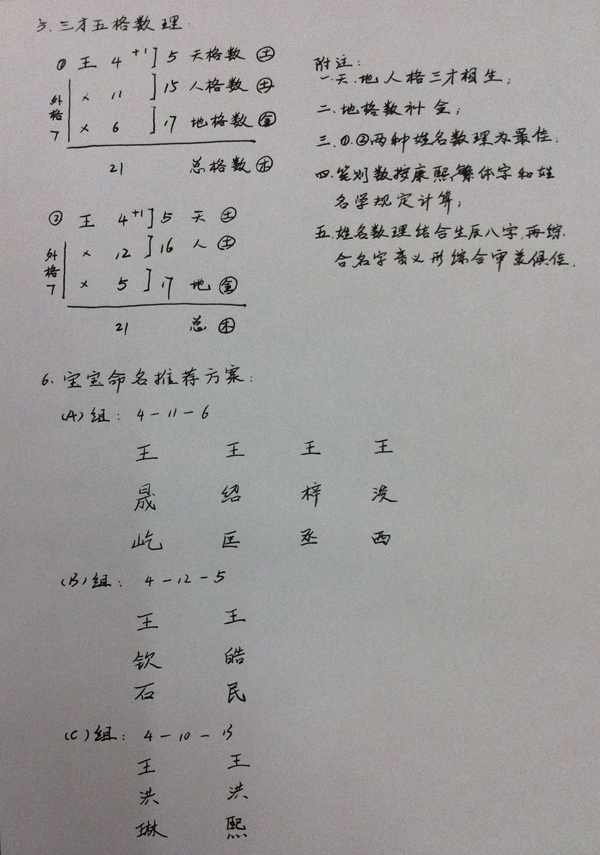 5. 三才五格数理
① 王 4 +1 ] 5 天格数 土
× 11 ] 15 人格数 土
× 6 ] 17 地格数 金
外格 7
21 总格数 木
② 王 4 +1 ] 5 天 土
× 12 ] 16 人 土
× 5 ] 17 地 金
外格 7
21 总 木
附注:
一.天.地人格三才相生;
二.地格数补金;
三.①.②两种姓名数理为最佳;
四.笔划数按康熙,繁体字和姓
名学规定计算;
五.姓名数理结合生辰八字.再综
合名字音义形综合审美俱佳.
6. 宝宝命名推荐方案:
(A)组: 4-11-6
王 王 王 王
晟 绍 梓
屹 匡 丞 西
(B)组: 4-12-5
王 王
钦 皓
石 民
(C)组: 4-10-13
王 王
洪 洪
琳 熙